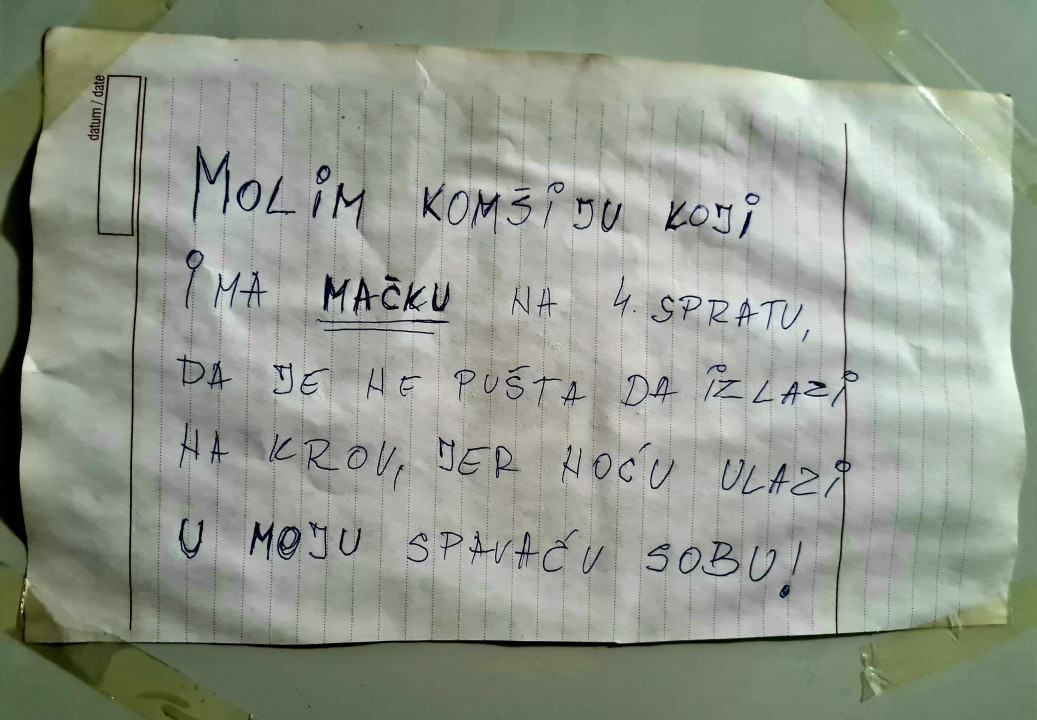 datum / date
MOLIM KOMŠIJU KOJI
IMA MAČKU NA 4. SPRATU,
DA JE NE PUŠTA DA IZLAZI
NA KROV, JER NOĆU ULAZI
U MOJU SPAVAĆU SOBU!